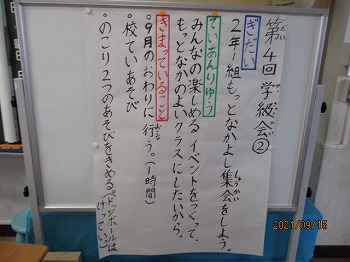 第4回 学級会②
だい かい がっきゅうかい
ぎだい
2年1組もっとなかよし集会をしよう。
しゅうかい
ていあんりゆう
みんなの楽しめるイベントをつくって、
もっとなかのよいクラスにしたいから。
きまっていること
・9月のおわりに行う。(1時間)
・校ていあそび
・のこり2つのあそびをきめる。
2021/09/15